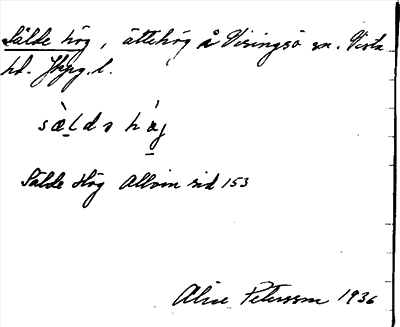 Sälde hög, ättehög å Visingsö sn. Vista
hd. Jkpg. l.
sæ̀ldə hö́g
Sälde Hög Allvin sid 153
Alice Petersson 1936